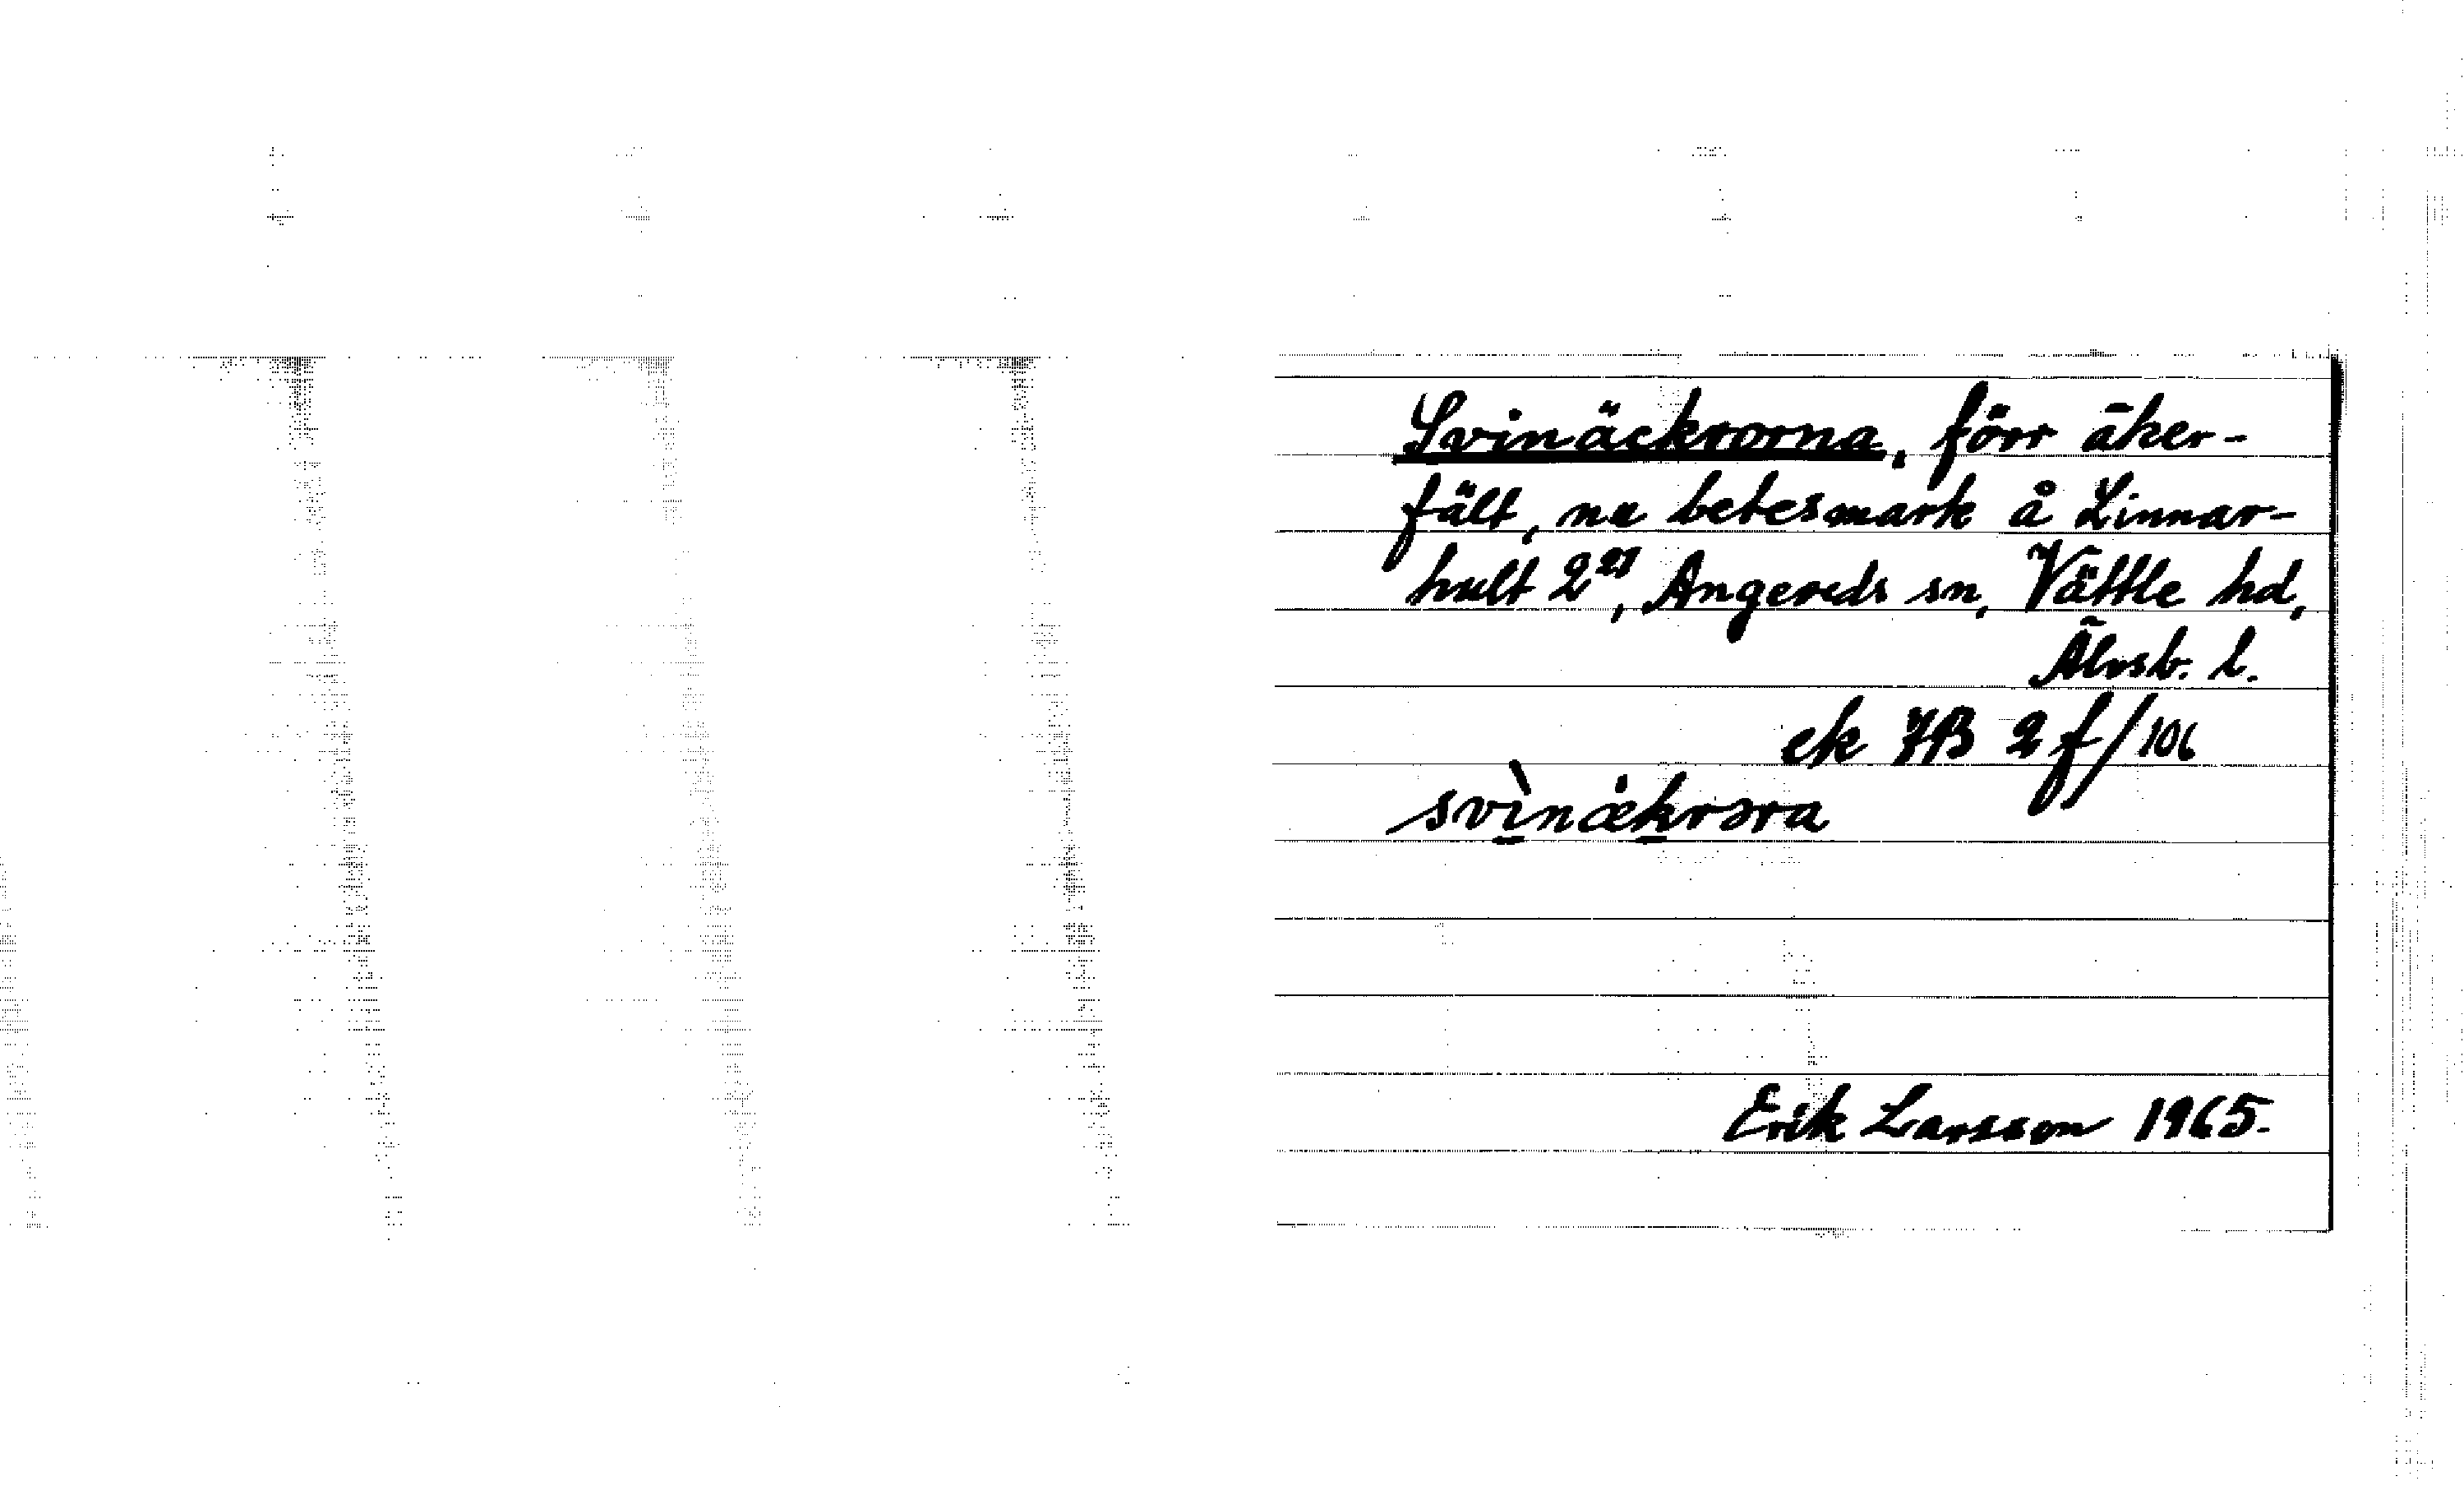 Svinäckrorna, förr åker-
fält, nu betesmark å Linnar-
hult 2²¹, Angereds sn, Vättle hd,
Älvsb. l.
ek 7B 2f/106
svìnækrɔra
Erik Larsson 1965.